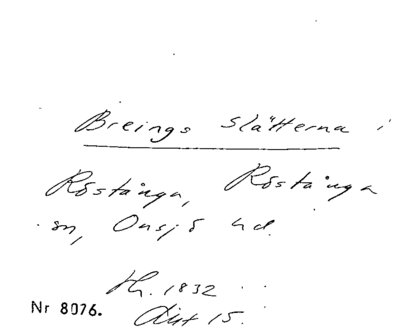 Breings slätterna i
Röstånga, Röstånga
sn, Onsjö hd.
Hr. 1832
Nr 8076.
Lht 15.